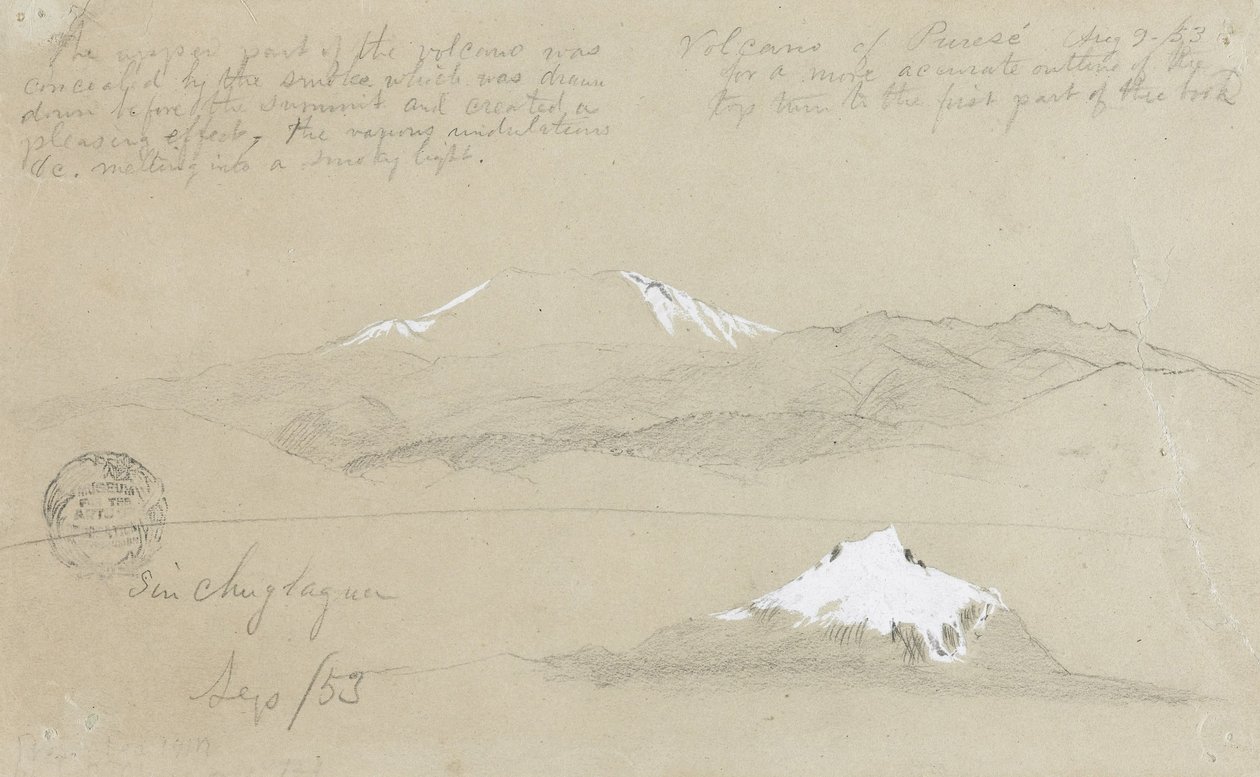 The upper part of the volcano was
concealed by the smoke which was drawn
down before the summit and created a
pleasing effect, the various undulations
&c. melting into a smoky light.
Volcano of Puresé Aug 9-/53
for a more accurate outline of the
top turn to the first part of the book
MUSEUM
FOR THE
ARTS
Sin Chuglagua
Sep /53